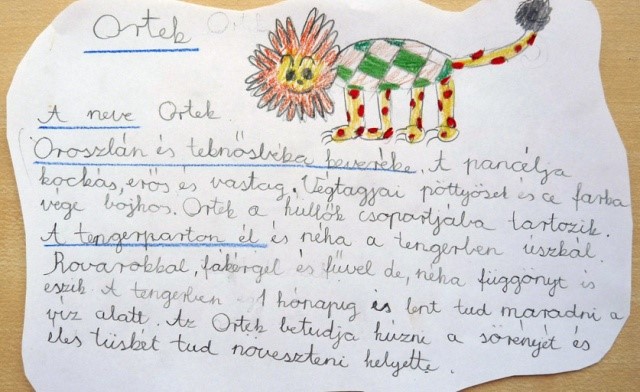 Ortek
A neve Ortek
Oroszlán és teknősbéka keveréke. A páncélja
kockás, erős és vastag. Végtagjai pöttyösek és a farka
vége bojhos. Ortek a hüllők csoportjába tartozik.
A tengerparton él és néha a tengerben úszkál.
Rovarokkal, fakérgel és fűvel de, néha függönyt is
eszik. A tengerben 1 hónapig is lent tud maradni a
víz alatt. Az Ortek betudja húzni a sörényét és
éles tüskét tud növeszteni helyette.